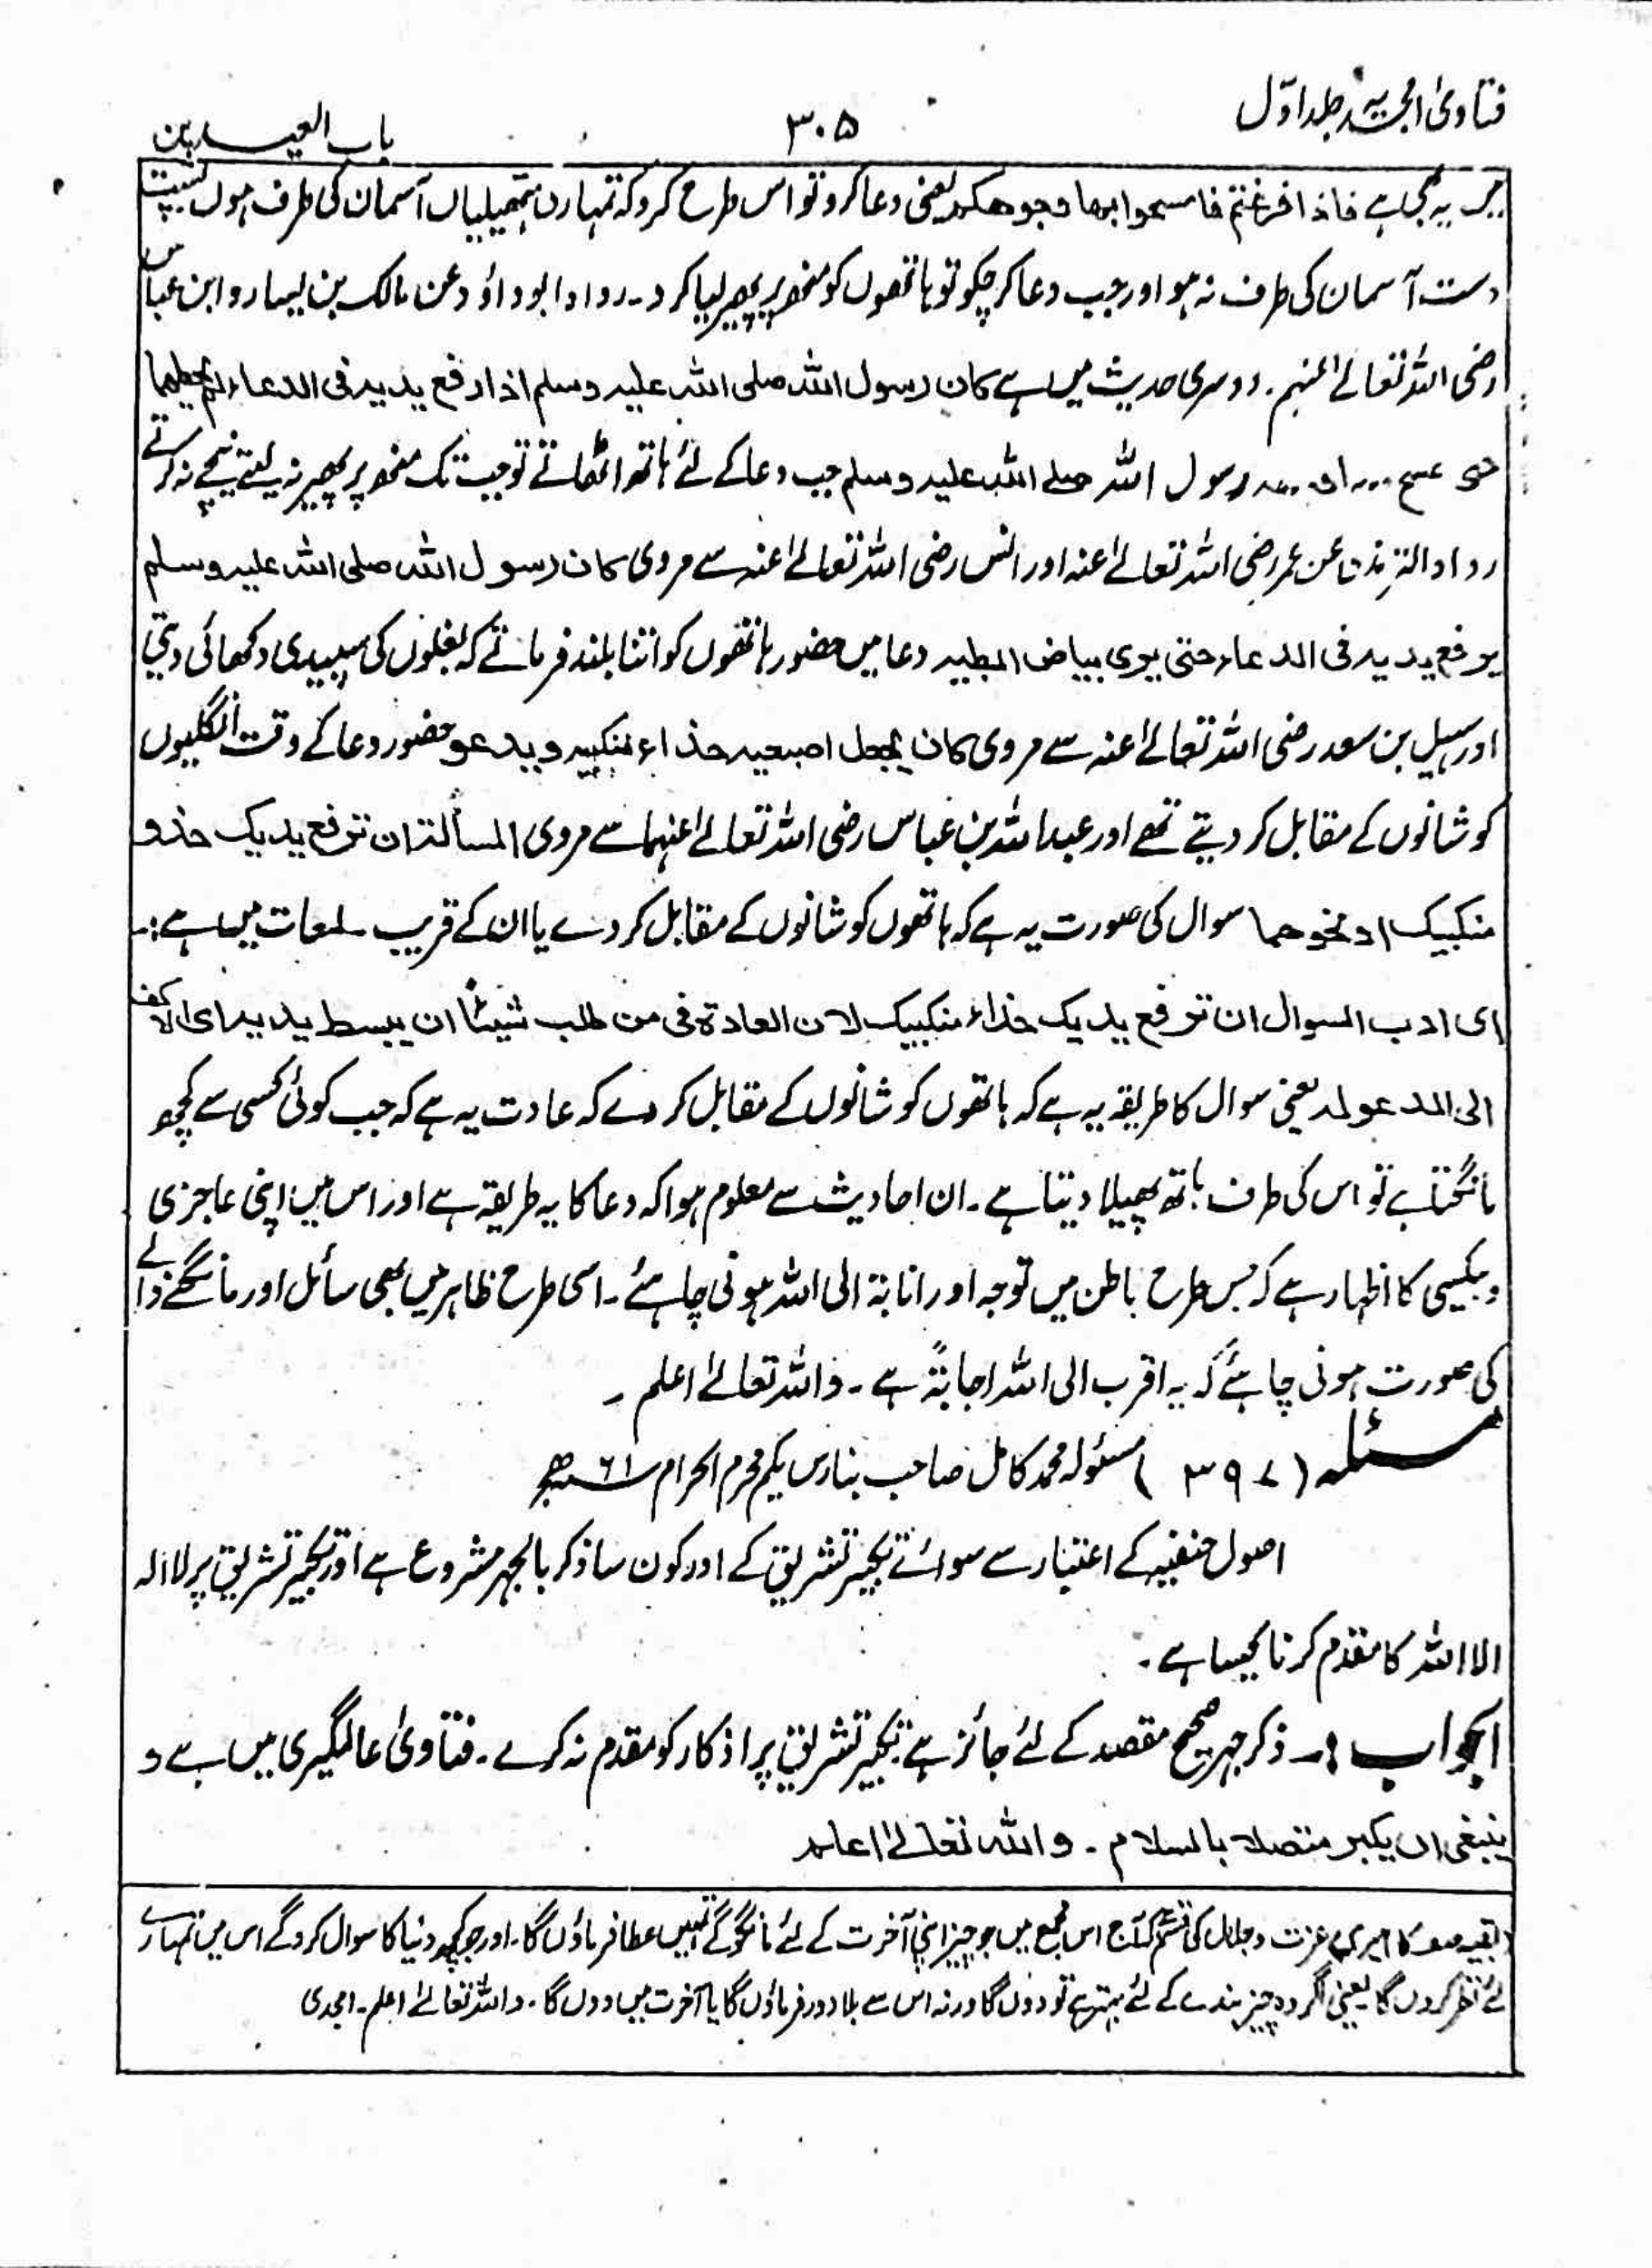 فتاویٰ امجدیہ جلد اوّل ۳۰۵ باب العیدین
میں یہ بھی ہے فاذا فرغتم فامسحوا بھا وجوھکم یعنی دعا کرو تو اس طرح کرو کہ تمہاری ہتھیلیاں آسمان کی طرف ہوں پشت
دست آسمان کی طرف نہ ہو اور جب دعا کر چکو تو ہاتھوں کو منھ پر پھیر لیا کرو۔ رواہ ابوداؤد عن مالک بن یسار و ابن عباس
رضی اللہ تعالےٰ عنہم۔ دوسری حدیث میں ہے کان رسول اللہ صلی اللہ علیہ وسلم اذا رفع یدیہ فی الدعاء لم یحطھما
رسول اللہ صلے اللہ علیہ وسلم جب دعا کے لئے ہاتھ اٹھاتے تو جب تک منھ پر پھیر نہ لیتے نیچے نہ کرتے
رواہ الترمذی عن عمر رضی اللہ تعالےٰ عنہ اور انس رضی اللہ تعالےٰ عنہ سے مروی کان رسول اللہ صلی اللہ علیہ وسلم
یرفع یدیہ فی الدعاء حتی یری بیاض ابطیہ دعا میں حضور ہاتھوں کو اتنا بلند فرماتے کہ بغلوں کی سپیدی دکھائی دیتی
اور سہیل بن سعد رضی اللہ تعالےٰ عنہ سے مروی کان یجعل اصبعیہ حذاء منکبیہ ویدعو حضور دعا کے وقت انگلیوں
کو شانوں کے مقابل کر دیتے تھے اور عبداللہ بن عباس رضی اللہ تعالےٰ عنہما سے مروی المسألۃ ان ترفع یدیک حذو
منکبیک او نحوھما سوال کی صورت یہ ہے کہ ہاتھوں کو شانوں کے مقابل کر دے یا ان کے قریب۔ لمعات میں ہے:۔
ای ادب السوال ان ترفع یدیک حذاء منکبیک لان العادۃ فی من طلب شیئاً ان یبسط یدیہ ای الاکف
الی المدعو لہ یعنی سوال کا طریقہ یہ ہے کہ ہاتھوں کو شانوں کے مقابل کر دے کہ عادت یہ ہے کہ جب کوئی کسی سے کچھ
مانگتا ہے تو اس کی طرف ہاتھ پھیلا دیتا ہے۔ ان احادیث سے معلوم ہوا کہ دعا کا یہ طریقہ ہے اور اس میں اپنی عاجزی
و بیکسی کا اظہار ہے کہ جس طرح باطن میں توجہ اور انابۃ الی اللہ ہونی چاہئے۔ اسی طرح ظاہر میں بھی سائل اور مانگنے والے
کی صورت ہونی چاہئے کہ یہ اقرب الی اللہ اجابۃً ہے۔ واللہ تعالےٰ اعلم۔
مسئلہ (۳۹۷) مسئولہ محمد کامل صاحب بنارس یکم محرم الحرام ۶۱ھ
اصول حنفیہ کے اعتبار سے سوائے تکبیر تشریق کے اور کون سا ذکر بالجہر مشروع ہے اور تکبیر تشریق پر لا الہ
الا اللہ کا مقدم کرنا کیسا ہے۔
الجواب :۔ ذکر جہر صحیح مقصد کے لئے جائز ہے تکبیر تشریق پر اذکار کو مقدم نہ کرے۔ فتاویٰ عالمگیری میں ہے و
ینبغی ان یکبر متصلا بالسلام۔ واللہ تعالےٰ اعلم
(بقیہ کا) میری عزت و جلال کی قسم کہ آج اس مجمع میں جو چیز اپنی آخرت کے لئے مانگو گے تمہیں عطا فرماؤں گا۔ اور جو کچھ دنیا کا سوال کرو گے اس میں تمہارے
لئے نظر کروں گا یعنی اگر وہ چیز بندے کے لئے بہتر ہے تو دوں گا ورنہ اس سے بلا دور فرماؤں گا یا آخرت میں دوں گا۔ واللہ تعالےٰ اعلم۔ امجدی